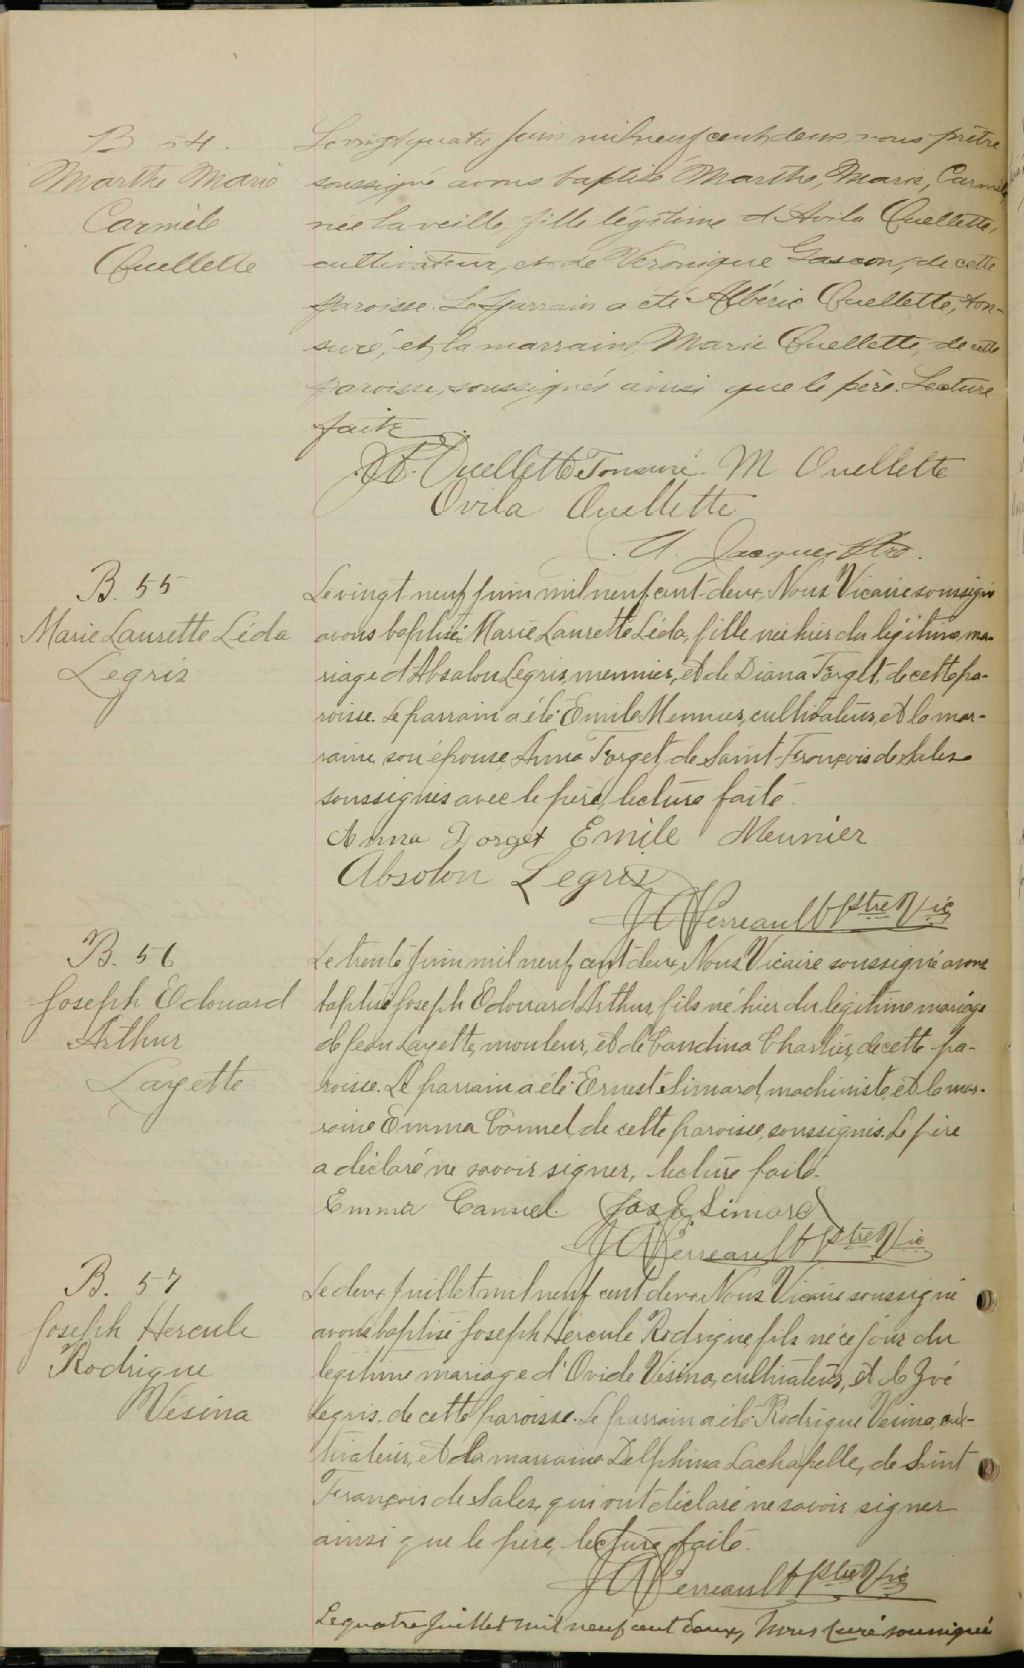 B 54.
Marthe Marie
Carmèl
Ouellette
Le vingt quatre juin mil neuf cent deux, nous prêtre
soussigné avons baptisé Marthe, Marie, Carmèl
née la veille, fille légitime d'Avila Ouellette,
cultivateur, et de Véronique Gascon, de cette
paroisse. Le parrain a été Albéric Ouellette, ton-
suré, et la marraine, Marie Ouellette, de cette
paroisse, soussignés ainsi que le père. Lecture
faite
A. Ouellette Tonsuré. M Ouellette
Ovila Ouellette
Jacques Ptre.
B. 55
Marie Laurette Léda
Legris
Le vingt neuf juin mil neuf cent-deux, Nous Vicaire soussigné
avons baptisé Marie Laurette Léda, fille née hier du légitime ma-
riage d'Absalon Legris, meunier, et de Diana Forget, de cette pa-
roisse. Le parrain a été Emile Meunier, cultivateur et la mar-
raine, son épouse, Anna Forget, de Saint-François de Sales
soussignés avec le père, lecture faite.
Anna Forget Emile Meunier
Absolon Legris
J A Perreault Ptre Vic
B. 56
Joseph Edouard
Arthur
Layette
Le trente juin mil neuf cent deux, Nous Vicaire soussigné avons
baptisé Joseph Edouard Arthur, fils né hier du légitime mariage
de Jean Layette, mouleur, et de Exandina Charlier, de cette pa-
roisse. Le parrain a été Ernest Simard, machiniste, et la mar-
raine Emma Connel, de cette paroisse, soussignés. Le père
a déclaré ne savoir signer, lecture faite.
Emma Cannel Jos E. Simard
J A Perreault Ptre Vic
B. 57
Joseph Hercule
Rodrigue
Vésina
Le deux juillet mil neuf cent deux Nous Vicaire soussigné
avons baptisé Joseph Hercule Rodrigue, fils né ce jour du
légitime mariage d'Ovide Vésina, cultivateur, et de Zoé
Legris, de cette paroisse. Le parrain a été Rodrigue Vésina, cul-
tivateur, et la marraine Delphina Lachapelle, de Saint
François de Sales, qui ont déclaré ne savoir signer
ainsi que le père, lecture faite.
J A Perreault Ptre Vic
Le quatre juillet mil neuf cent deux, Nous curé soussigné